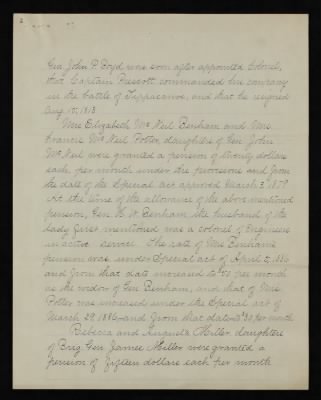 Gen John P. Boyd was soon after appointed Colonel,
that Captain Prescott commanded his company
in the battle of Tippacanoe, and that he resigned
Aug 15, 1813.
Mrs Elizabeth McNeil Benham and Mrs
Frances McNeil Potter, daughters of Gen John
McNeil were granted a pension of twenty dollars
each per month under the provisions and from
the date of the Special act approved March 3 1879
At the time of the allowance of the above mentioned
pension, Gen H. W. Benham, the husband of the
lady first mentioned was a colonel of Engineers
in active service. The rate of Mrs Benham's
pension was under Special act of April 2, 1886
and from that date increased to per month
as the widow of Gen Benham, and that of Mrs
Potter was increased under the Special act of
March 29, 1886 and from that date to $30 per month
Rebecca and Miller daughters
of Brig Gen James Miller were granted a
pension of fifteen dollars each per month